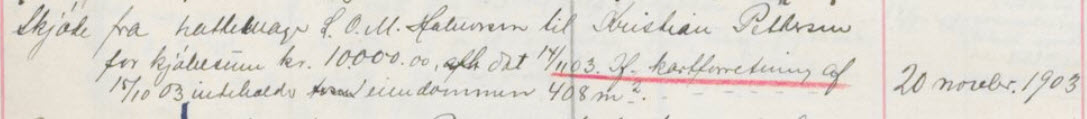 Skjøde fra hattemager L. O. M. Halvorsen til Kristian Pettersen
for kjøbesum kr. 10000.00, dat 14/11 03. If. kartforretning af
15/10 03 indeholder eiendommen 408 m². 20 novebr. 1903